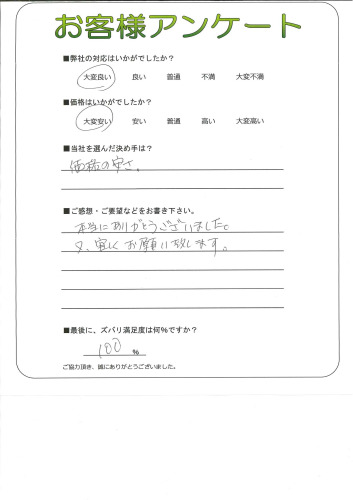 お客様アンケート
■弊社の対応はいかがでしたか？
大変良い 良い 普通 不満 大変不満
■価格はいかがでしたか？
大変安い 安い 普通 高い 大変高い
■当社を選んだ決め手は？
価格の安さ。
■ご感想・ご要望などをお書き下さい。
本当にありがとうございました。
又、宜しくお願い致します。
■最後に、ズバリ満足度は何％ですか？
100 ％
ご協力頂き、誠にありがとうございました。